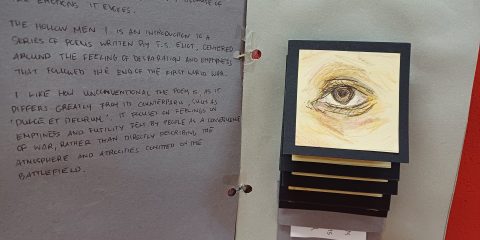 THE EMOTIONS IT EVOKES.
THE HOLLOW MEN I IS AN INTRODUCTION TO A
SERIES OF POEMS WRITTEN BY T.S. ELIOT, CENTERED
AROUND THE FEELING OF DESPARATION AND EMPTINESS
THAT FOLLOWED THE END OF THE FIRST WORLD WAR.
I LIKE HOW UNCONVENTIONAL THE POEM IS, AS IT
DIFFERS GREATLY FROM ITS COUNTERPARTS, SUCH AS
'DULCE ET DECORUM'. IS FOCUSED ON FEELINGS OF
EMPTINESS AND FUTILITY FELT BY PEOPLE AS A CONSEQUENCE
OF WAR, RATHER THAN DIRECTLY DESCRIBING THE
ATMOSPHERE AND ATROCITIES COMMITED ON THE
BATTLEFIELD.